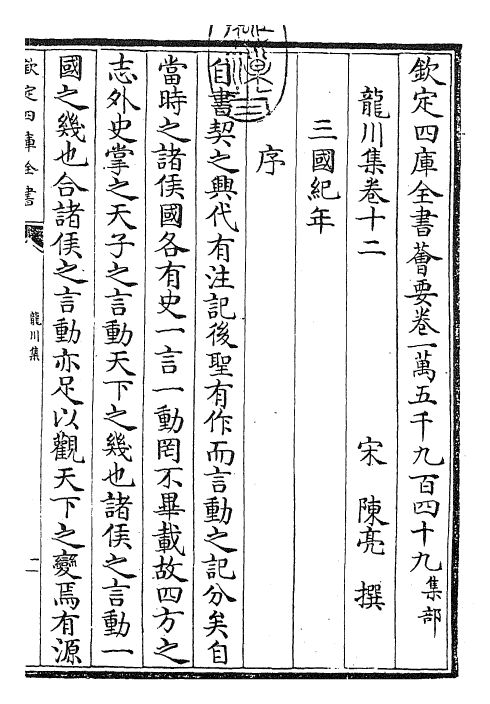 欽定四庫全書薈要卷一萬五千九百四十九集部
龍川集卷十二
宋 陳亮 撰
三國紀年
序
自書契之興代有注記後聖有作而言動之記分矣自
當時之諸侯國各有史一言一動罔不畢載故四方之
志外史掌之天子之言動天下之幾也諸侯之言動一
國之幾也合諸侯之言動亦足以觀天下之變焉有源
欽定四庫全書
龍川集
一